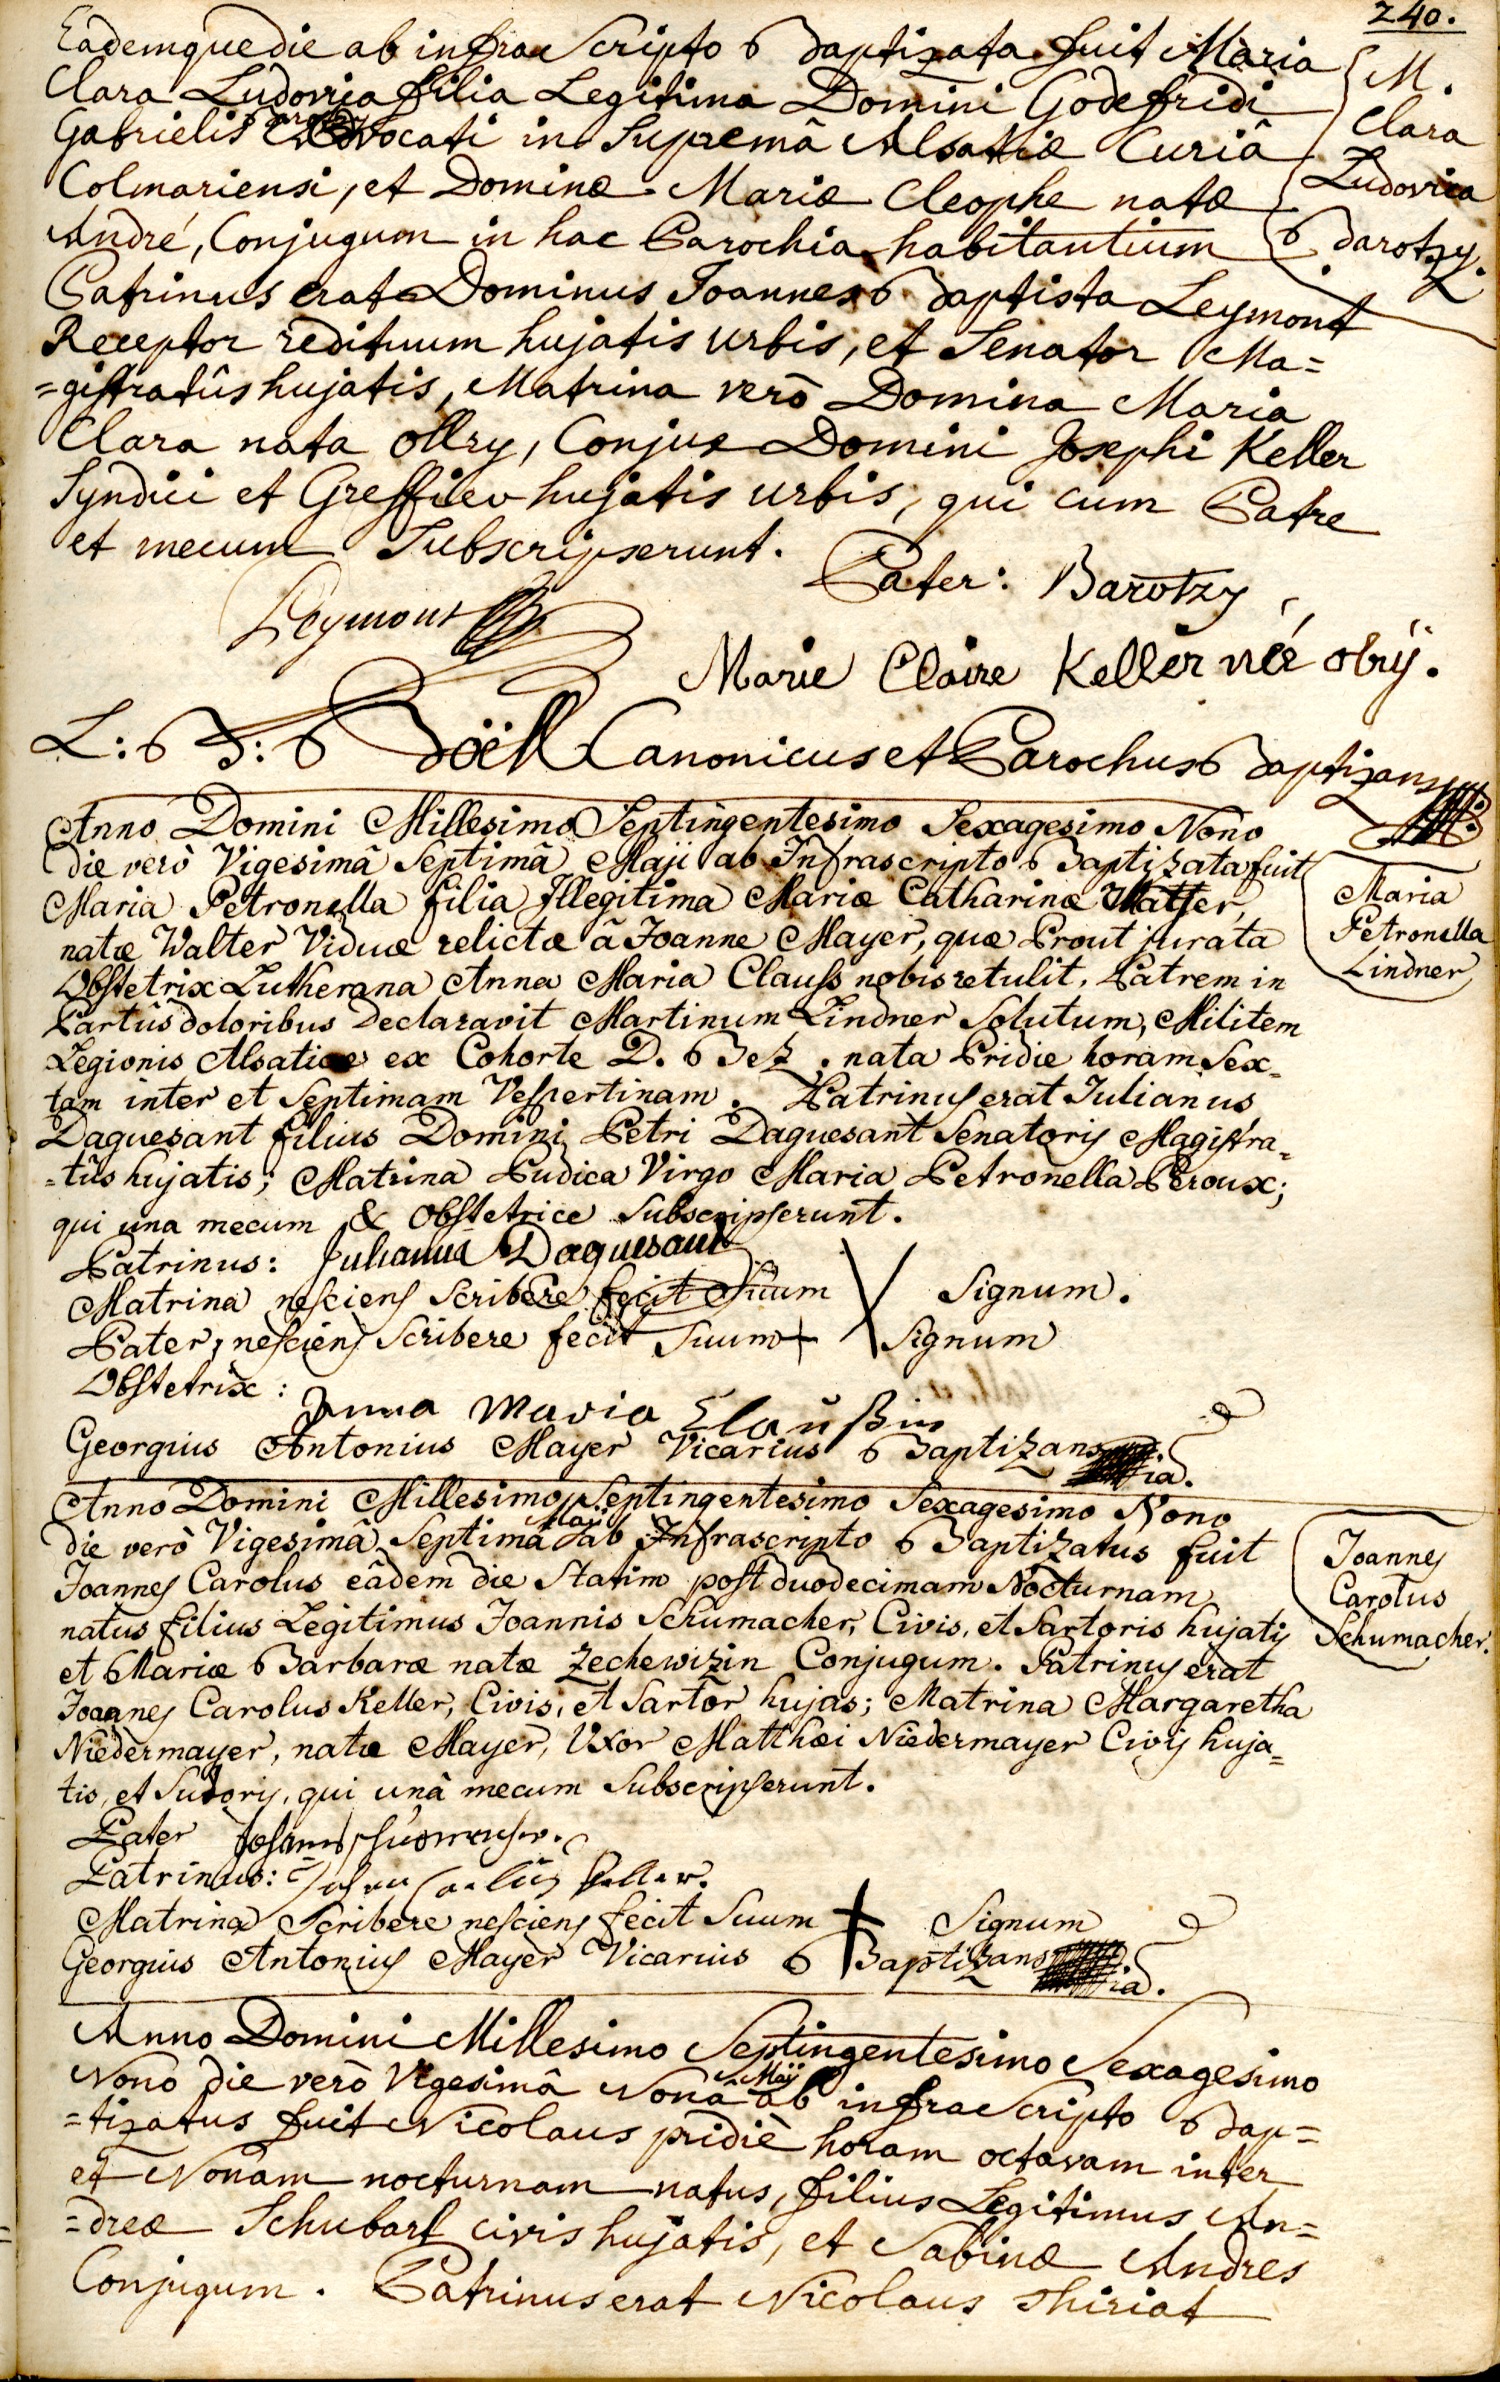 240.
Eademque die ab infra Scripto Baptizata fuit Maria
Clara Ludovica filia Legitima Domini Godefridi
Gabrielis Barotzy Advocati in Supremâ Alsatiæ Curiâ
Colmariensi, et Dominæ Mariæ Cleophe natæ
André, Conjugum in hac Parochia habitantium
Patrinus erat Dominus Joannes Baptista Leymont
Receptor redituum hujatis urbis, et Senator Ma=
=gistratûs hujatis, Matrina verò Domina Maria
Clara nata Obry, Conjux Domini Josephi Keller
Syndici et Greffier hujatis urbis, qui cum Patre
et mecum Subscripserunt.
M.
Clara
Ludovica
Barotzy.
Pater: Barotzy
Leymont
Marie Claire Keller née obrÿ.
L: B J: B Doëll Canonicus et Parochus Baptizans
Anno Domini Millesimo Septingentesimo Sexagesimo Nono
die verò Vigesimâ Septimâ Maji ab Infrascripto Baptizata fuit
Maria Petronella filia Illegitima Mariæ Catharinæ
natæ Walter Viduæ relictæ à Joanne Mayer, quæ Prout jurata
Obstetrix Lutherana Anna Maria Clauss nobis retulit, Patrem in
Partûs doloribus Declaravit Martinum Lindner Solutum, Militem
Legionis Alsatiæ ex Cohorte D. Bez, nata Pridie horam Sex=
tam inter et Septimam Vespertinam. Patrinus erat Julianus
Daguesant filius Domini Petri Daguesant Senatoris Magistra=
=tûs hujatis; Matrina Pudica Virgo Maria Petronella Peroux;
qui una mecum & Obstetrice Subscripserunt.
Maria
Petronella
Lindner
Patrinus: Julianus Daguesant
Matrina nesciens Scribere fecit Suum Signum.
Pater, nesciens Scribere fecit Suum + Signum
Obstetrix: Anna Maria Claußin
Georgius Antonius Mayer Vicarius Baptizans
Anno Domini Millesimo Septingentesimo Sexagesimo Nono
die verò Vigesimâ Septimâ Maji ab Infrascripto Baptizatus fuit
Joannes Carolus eâdem die Statim post duodecimam Nocturnam
natus filius Legitimus Joannis Schumacher, Civis, et Sartoris hujatis
et Mariæ Barbaræ natæ Zechewizin Conjugum. Patrinus erat
Joannes Carolus Keller, Civis, et Sartor hujas; Matrina Margaretha
Niedermayer, natæ Mayer, Uxor Matthæi Niedermayer Civis huja=
tis, et Sutoris, qui unâ mecum Subscripserunt.
Joannes
Carolus
Schumacher.
Pater Johannes Schumacher.
Patrinus: Johan Carlus Keller.
Matrina Scribere nesciens fecit Suum + Signum
Georgius Antonius Mayer Vicarius Baptizans
Anno Domini Millesimo Septingentesimo Sexagesimo
Nono die verò Vigesimâ Nonâ Maij ab infra Scripto Bap=
=tizatus fuit Nicolaus pridiè horam octavam inter
et Nonam nocturnam natus, filius Legitimus An=
=dreæ Schubart civis hujatis, et Sabinæ Andres
Conjugum. Patrinus erat Nicolaus Thiriat